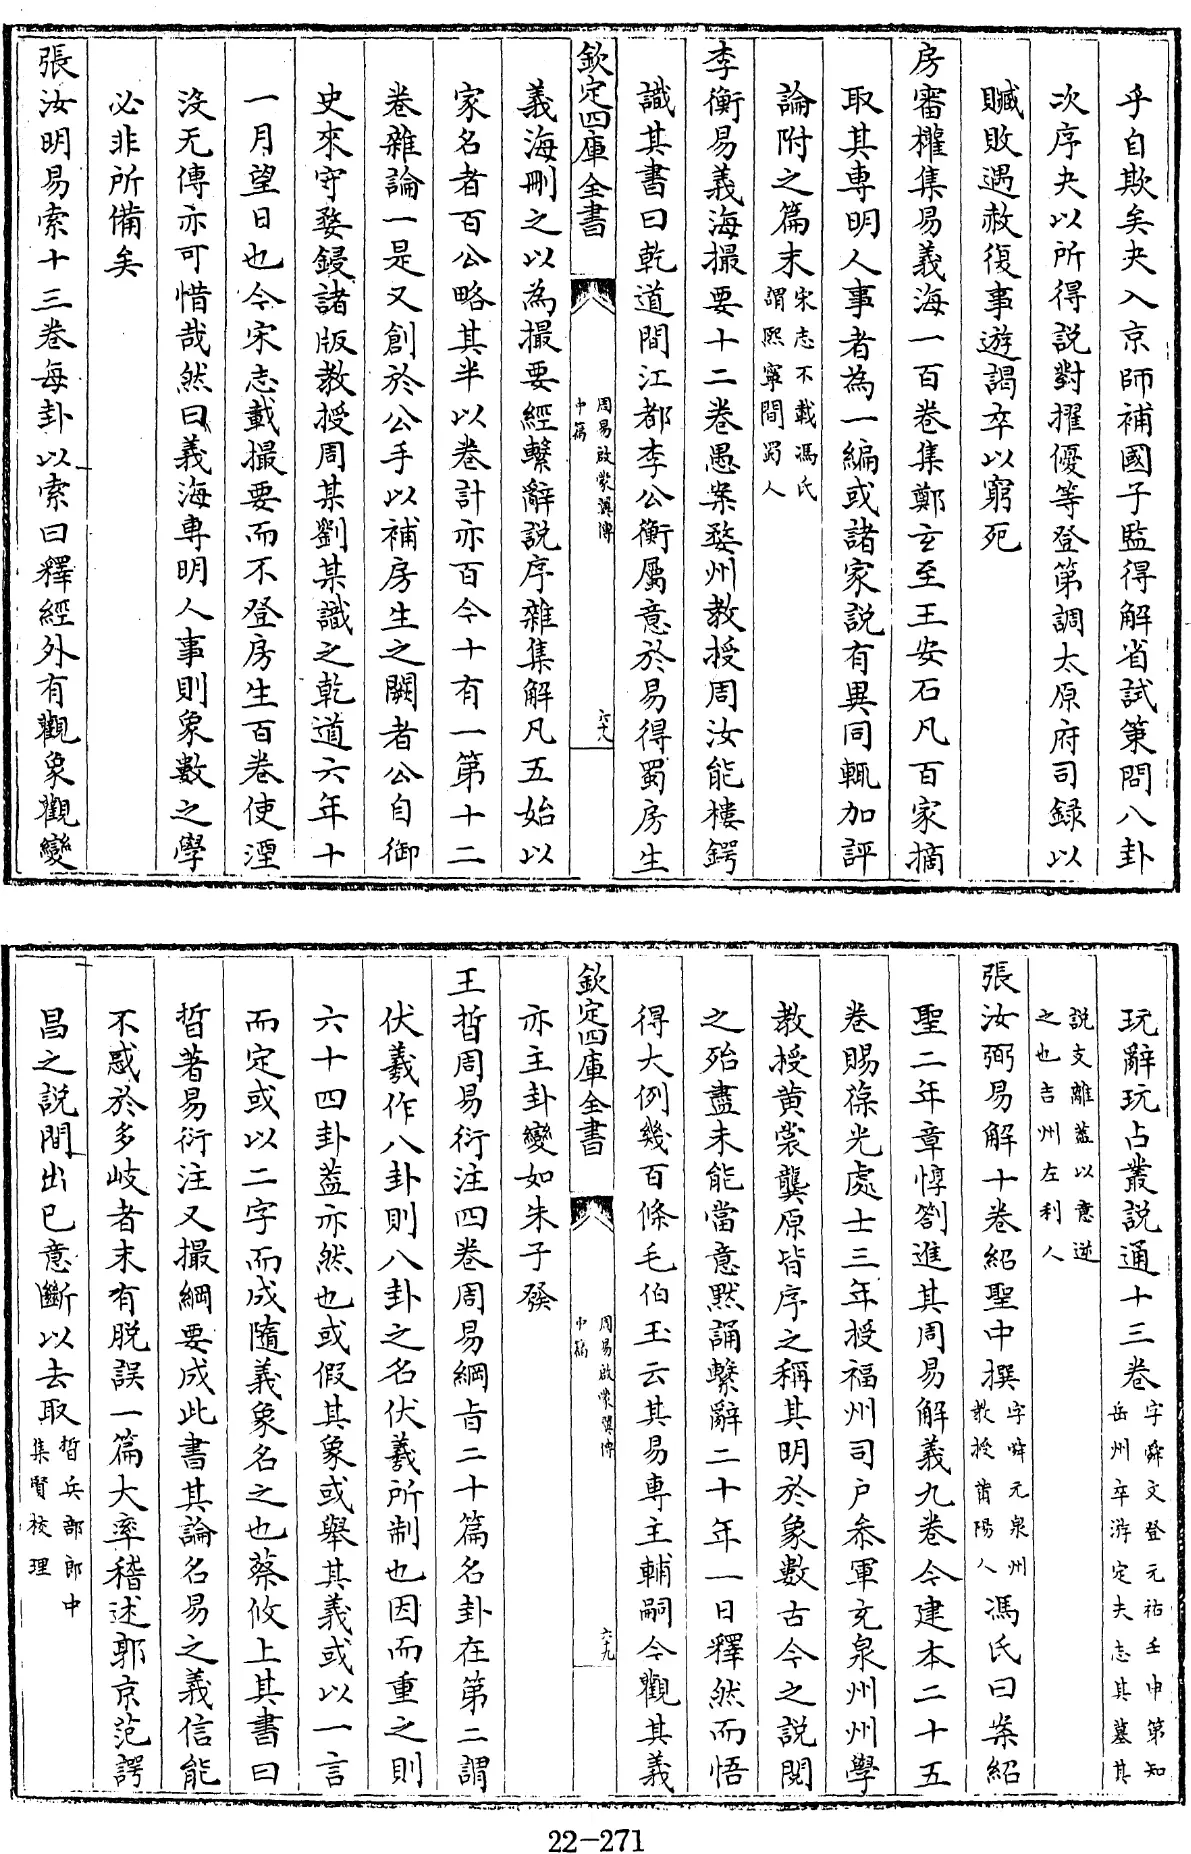 乎自欺矣夬入京師補國子監得解省試策問八卦
次序夬以所得説對擢優等登第調太原府司録以
贓敗遇赦復事遊謁卒以窮死
房審權集易義海一百卷集鄭玄至王安石凡百家摘
取其専明人事者為一編或諸家説有異同輒加評
論附之篇末宋志不載馮氏
謂熙寧間蜀人
李衡易義海撮要十二卷愚案婺州教授周汝能樓鍔
識其書曰乾道間江都李公衡屬意於易得蜀房生
欽定四庫全書
周易啟蒙翼傳
中篇
六十九
義海刪之以為撮要經繫辭説序雜集解凡五始以
家名者百公略其半以卷計亦百今十有一第十二
卷雜論一是又創於公手以補房生之闕者公自御
史來守婺鋟諸版教授周某劉某識之乾道六年十
一月望日也今宋志載撮要而不登房生百卷使湮
沒无傳亦可惜哉然曰義海専明人事則象數之學
必非所備矣
張汝明易索十三卷每卦以索曰釋經外有觀象觀變
玩辭玩占叢説通十三卷字舜文登元祐壬申第知
岳州卒游定夫志其墓其
説支離葢以意逆
之也吉州左利人
張汝弼易解十卷紹聖中撰字舜元泉州
教授莆陽人馮氏曰案紹
聖二年章惇劄進其周易解義九卷今建本二十五
卷賜葆光處士三年授福州司户叅軍充泉州州學
教授黄裳龔原皆序之稱其明於象數古今之説閲
之殆盡未能當意黙誦繫辭二十年一日釋然而悟
得大例幾百條毛伯玉云其易専主輔嗣今觀其義
欽定四庫全書
周易啟蒙翼傳
中篇
六九
亦主卦變如朱子發
王晳周易衍注四卷周易綱旨二十篇名卦在第二謂
伏羲作八卦則八卦之名伏羲所制也因而重之則
六十四卦葢亦然也或假其象或舉其義或以一言
而定或以二字而成隨義象名之也蔡攸上其書曰
晳著易衍注又撮綱要成此書其論名易之義信能
不惑於多岐者末有脱誤一篇大率稽述郭京范諤
昌之説間出己意斷以去取晳兵部郎中
集賢校理
22-271